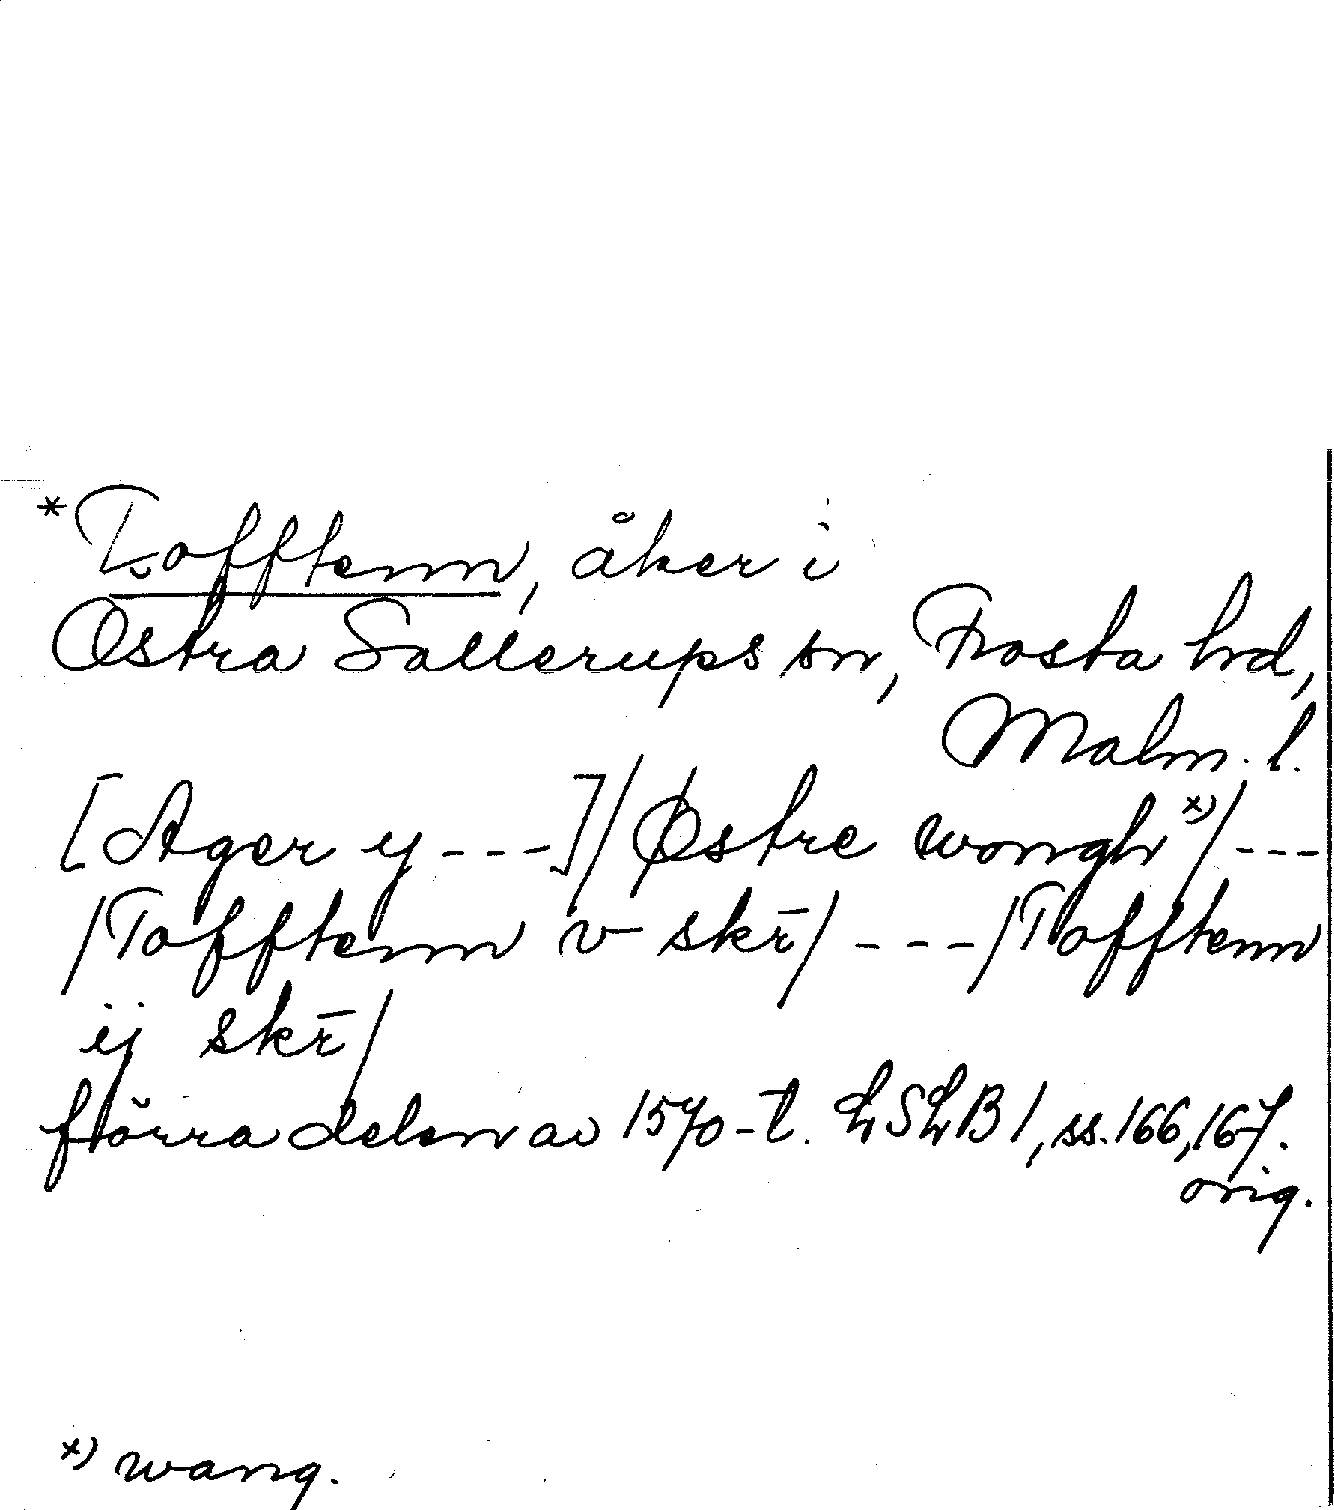 *Tofftenn, åker i
Östra Sallerups sn, Frosta hd,
Malm. l.
[Ager y ---]/Østre wongh*)/---
/Tofftenn v skr̄/ ---/Tofftenn
ij skr̄/
förra delen av 1570-t. LSLB 1, ss. 166, 167.
orig.
*) wang.